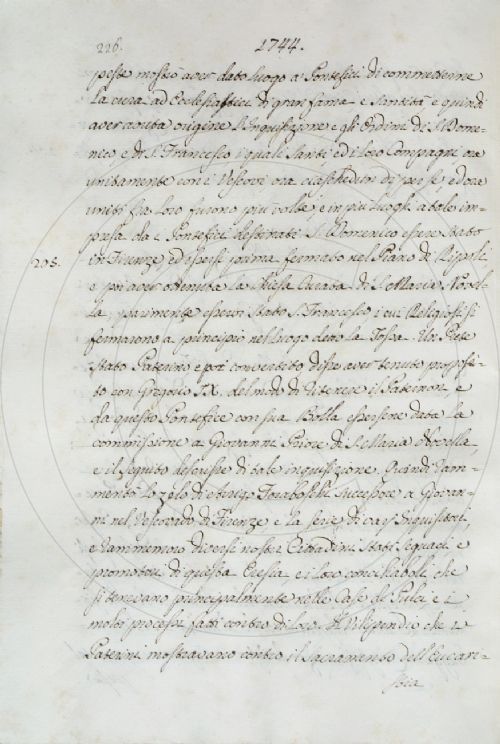 226.
1744.
peste mostrò aver dato luogo a Pontefici di commetterne
la cura ad Ecclesiastici di gran fama e santità e quindi
aver avuta origine l'Inquisizione e gli Ordini di S. Dome-
nico e di S. Francesco i quali Santi ed i loro Compagni ora
unitamente con i Vescovi ora ciaschedun di per se, ed ora
uniti fra loro furono più volte, e in più luoghi a tale im-
presa da i Pontefici destinati S. Domenico essere stato
in Firenze, ed essersi prima fermato nel Piano di Ripoli
205.
e poi aver ottenuta la Chiesa Curata di S. Maria Novel-
la, parimente esservi stato S. Francesco i cui Religiosi si
fermarono a principio nel luogo detto la Fossa. Un Prete
stato Paterino e poi convertito dopo aver tenuto proposi-
to con Gregorio IX. del modo di il Paterino, e
da questo Pontefice con sua Bolla essersene data la
commissione a Giovanni Priore di S. Maria Novella,
e il seguito di tale inquisizione. Quindi ram-
mentò lo zelo di Toraboschi successore a Giovan-
ni nel Vescovado di Firenze e la serie di varj Inquisitori,
e rammemorò diversi nostri Cittadini stati seguaci e
promotori di questa Eresia e i loro conciliaboli che
si tenevano principalmente nelle Case de Pulci e i
molti processi fatti contro di loro. Il Vilipendio che i
Paterini mostravano contro il Sacramento dell'Eucare-
stia